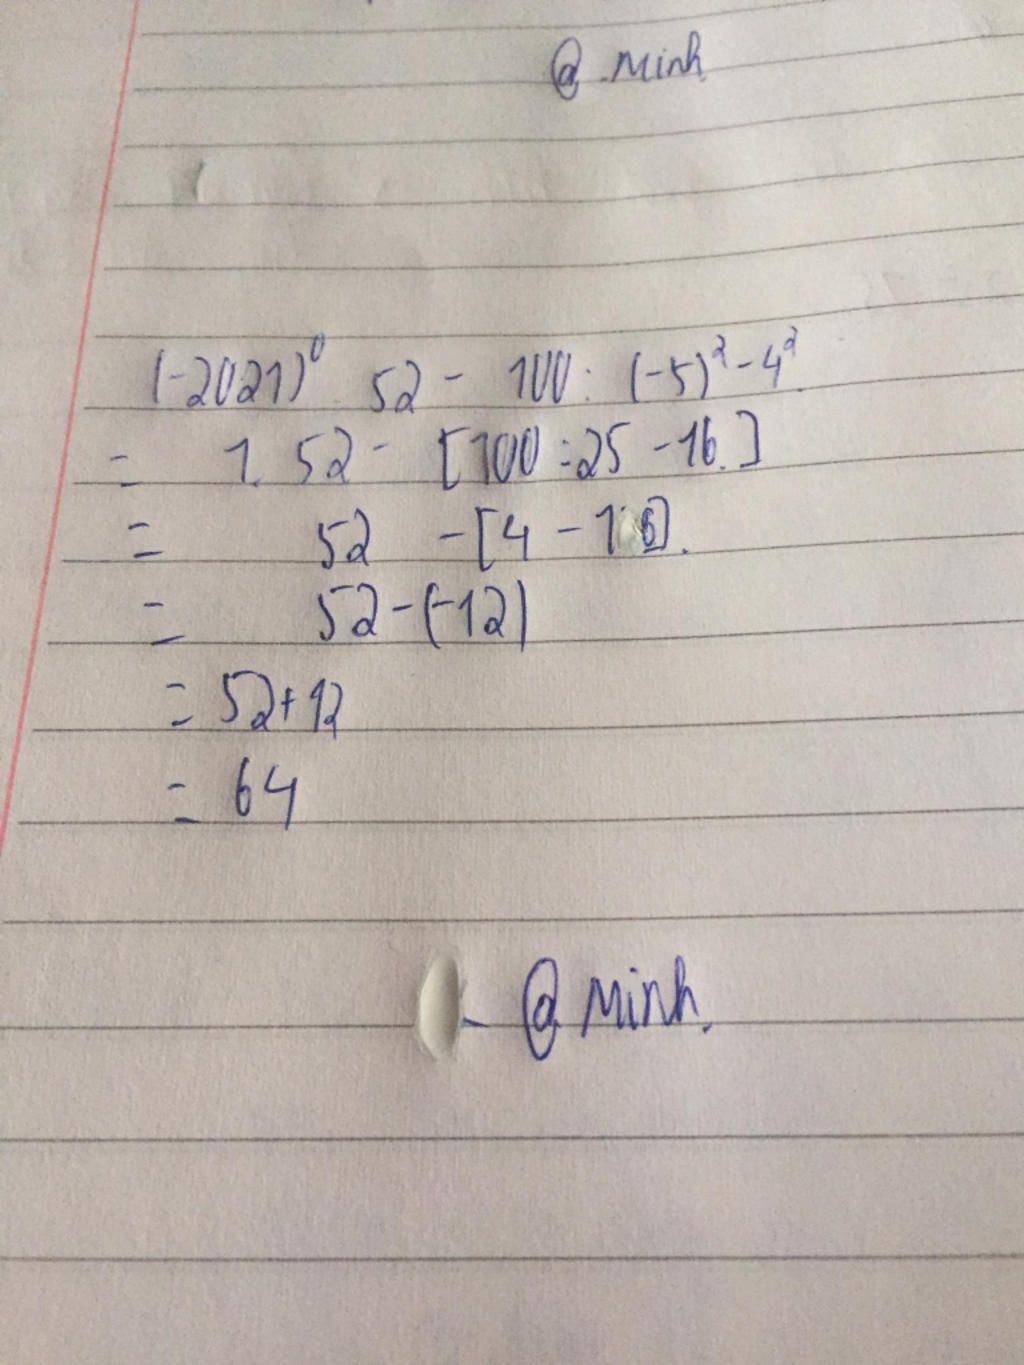 @ Minh
(-2021)⁰. 52 - 100: (-5)² - 4².
= 1. 52 - [100 : 25 - 16.]
= 52 - [4 - 16].
= 52 - (-12)
= 52 + 12
= 64
- @ Minh.